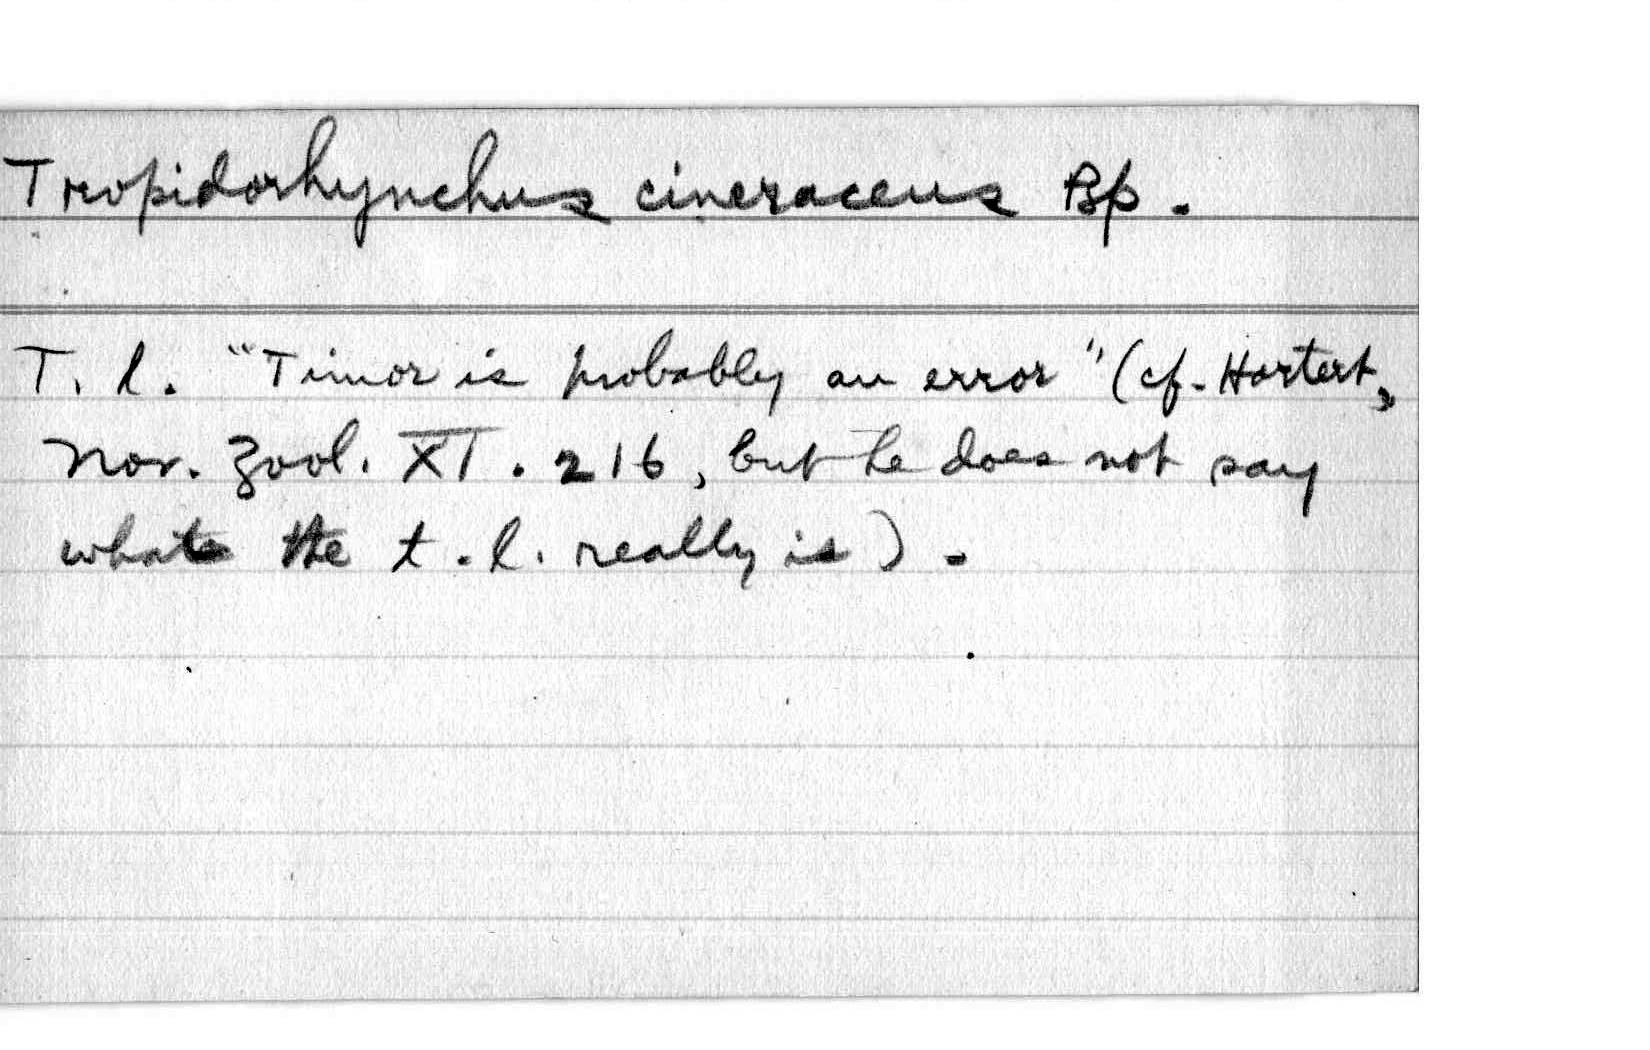 Tropidorhynchus cineraceus Bp.
T. l. "Timor is probably an error" (cf. Hartert,
Nov. Zool. XI. 216, but he does not say
what the t. l. really is).